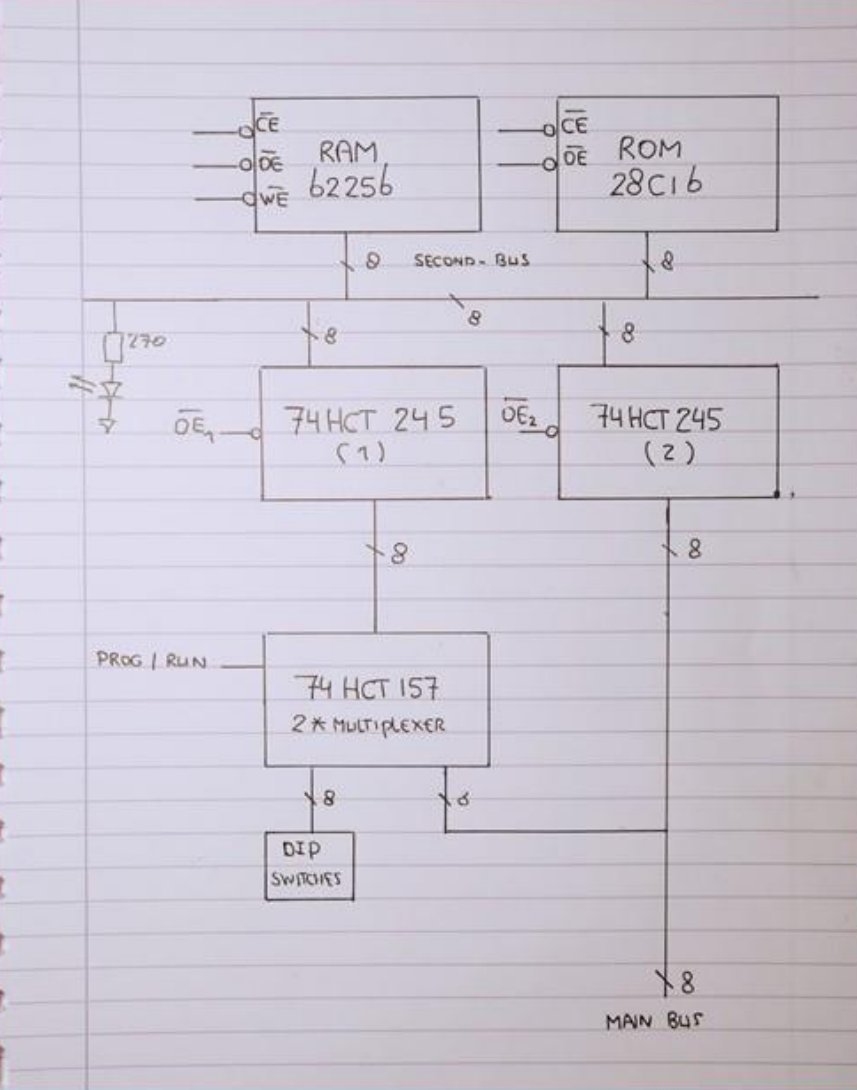 C̅E̅
O̅E̅
W̅E̅
RAM
62256
C̅E̅
O̅E̅
ROM
28C16
8
SECOND-BUS
8
8
270
8
8
O̅E̅₁
74HCT 245
(1)
O̅E̅₂
74HCT245
(2)
8
8
PROG / RUN
74 HCT 157
2* MULTIPLEXER
8
8
DIP
SWITCHES
8
MAIN BUS